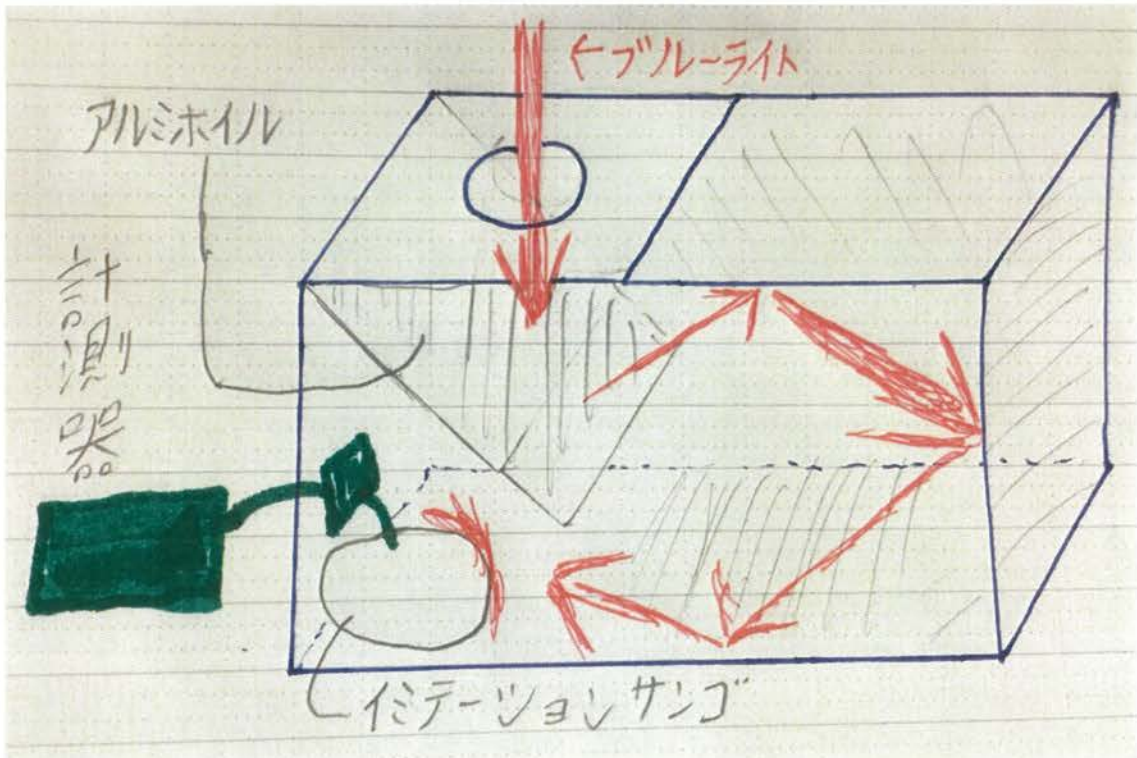 ←ブルーライト
アルミホイル
計測器
イミテーションサンゴ